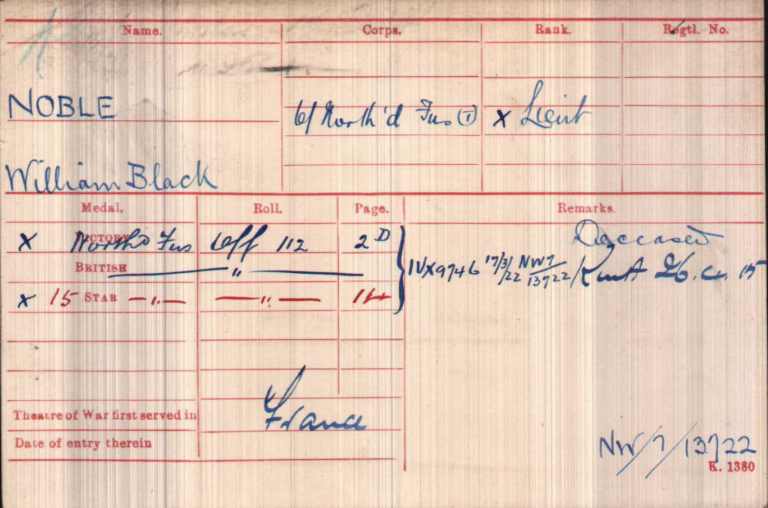 Name. Corps. Rank. Regtl. No.
NOBLE 6/ North'd Fus (1) x Lieut
William Black
Medal. Roll. Page. Remarks.
x VICTORY North'd Fus Off 112 2D Deceased
BRITISH " IV/X9746 17/3/22 NW7/13722
x 15 STAR —"— —"—
Theatre of War first served in France
Date of entry therein
NW/7/13722
K. 1380